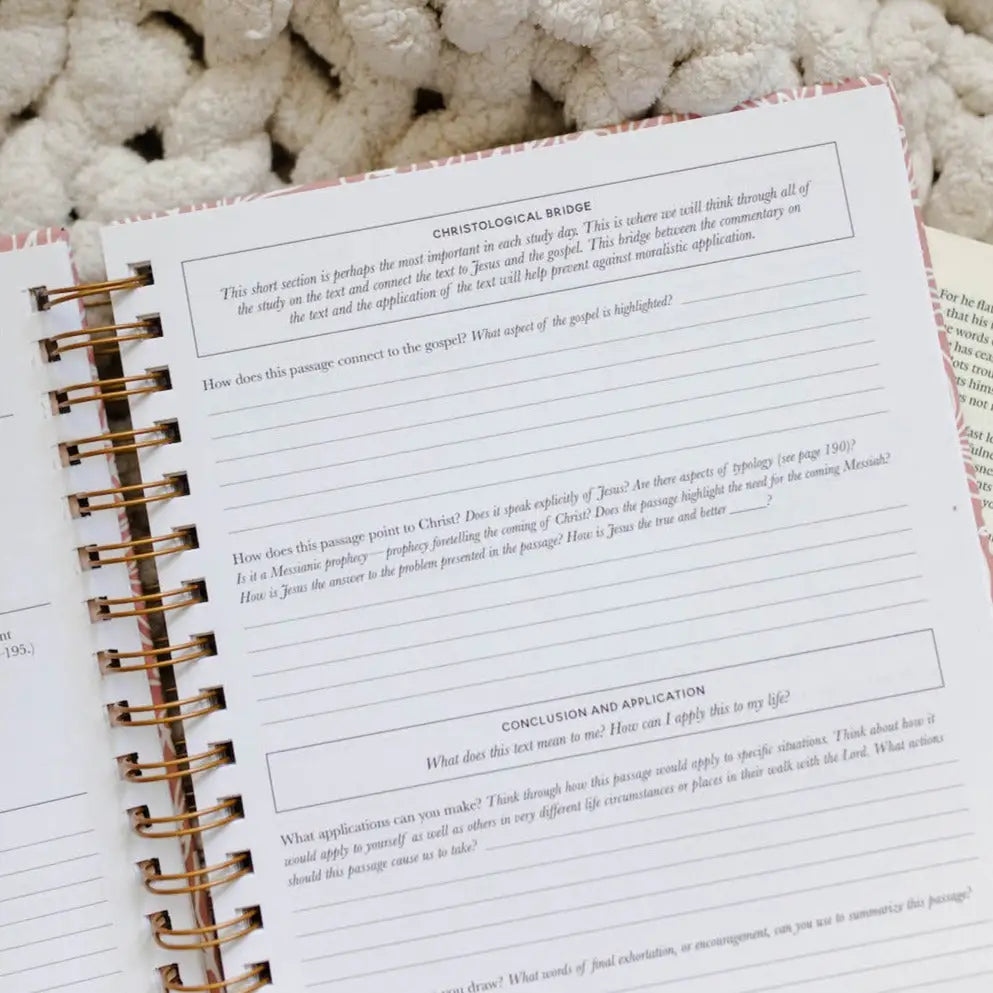 CHRISTOLOGICAL BRIDGE
This short section is perhaps the most important in each study day. This is where we will think through all of
the study on the text and connect the text to Jesus and the gospel. This bridge between the commentary on
the text and the application of the text will help prevent against moralistic application.
How does this passage connect to the gospel? What aspect of the gospel is highlighted?
How does this passage point to Christ? Does it speak explicitly of Jesus? Are there aspects of typology (see page 190)?
Is it a Messianic prophecy—prophecy foretelling the coming of Christ? Does the passage highlight the need for the coming Messiah?
How is Jesus the answer to the problem presented in the passage? How is Jesus the true and better _____?
CONCLUSION AND APPLICATION
What does this text mean to me? How can I apply this to my life?
What applications can you make? Think through how this passage would apply to specific situations. Think about how it
would apply to yourself as well as others in very different life circumstances or places in their walk with the Lord. What actions
should this passage cause us to take?
you draw? What words of final exhortation, or encouragement, can you use to summarize this passage?
nt
-195.)
For he flat
that his
words
has cea
ots trou
ts hims
s not